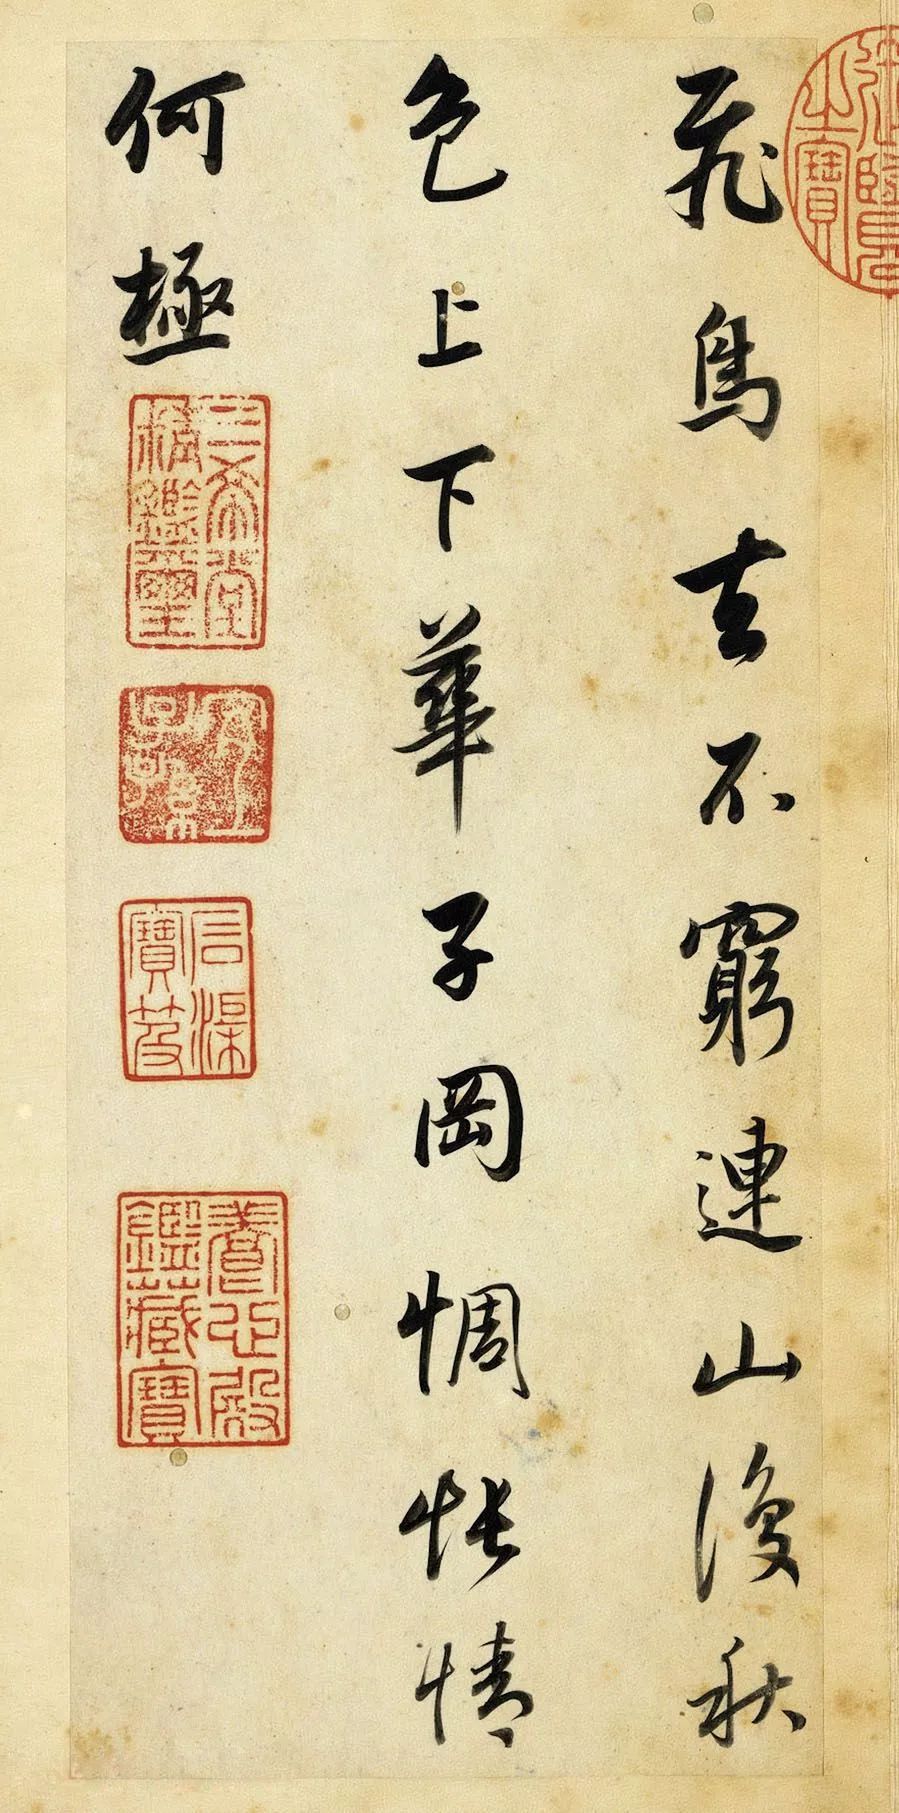 之寶
飛鳥去不窮連山復秋
色上下華子岡惆悵情
何極
三希堂
精鑑璽
石渠
寶笈
養心殿
鑑藏寶